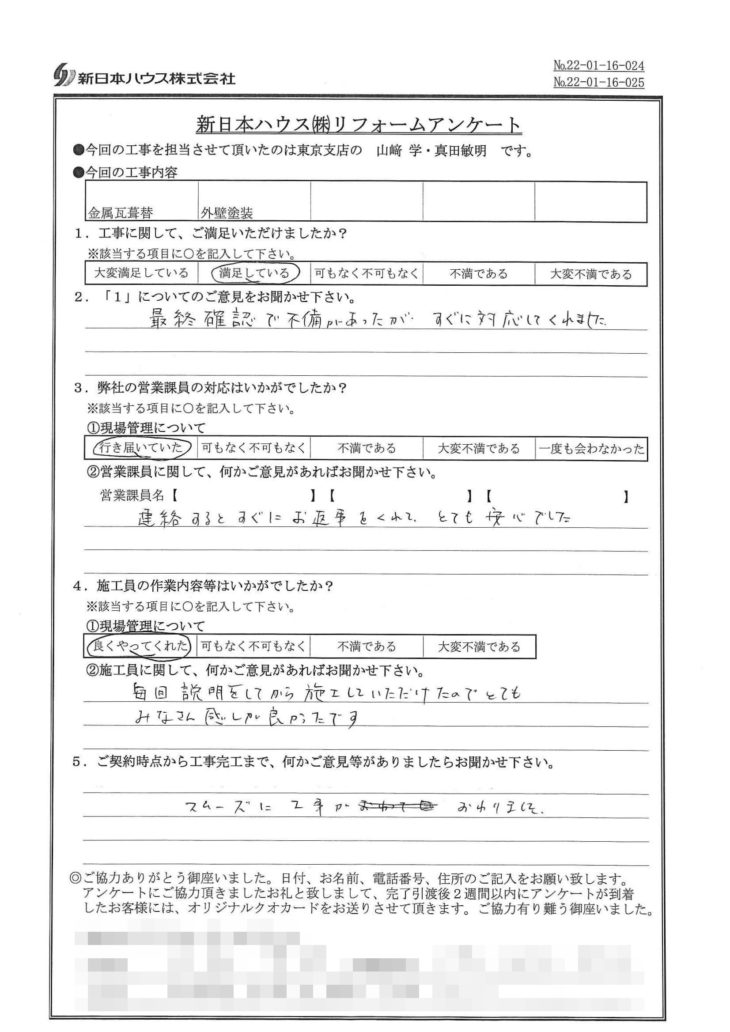 新日本ハウス株式会社
№22-01-16-024
№22-01-16-025
新日本ハウス㈱リフォームアンケート
●今回の工事を担当させて頂いたのは東京支店の 山﨑 学・真田敏明 です。
●今回の工事内容
金属瓦葺替 外壁塗装
1．工事に関して、ご満足いただけましたか？
※該当する項目に○を記入して下さい。
大変満足している 満足している 可もなく不可もなく 不満である 大変不満である
2．「1」についてのご意見をお聞かせ下さい。
最終確認で不備があったが すぐに対応してくれました
3．弊社の営業課員の対応はいかがでしたか？
※該当する項目に○を記入して下さい。
①現場管理について
行き届いていた 可もなく不可もなく 不満である 大変不満である 一度も会わなかった
②営業課員に関して、何かご意見があればお聞かせ下さい。
営業課員名【 】【 】【 】
連絡するとすぐにお返事をくれて、とても安心でした
4．施工員の作業内容等はいかがでしたか？
※該当する項目に○を記入して下さい。
①現場管理について
良くやってくれた 可もなく不可もなく 不満である 大変不満である
②施工員に関して、何かご意見があればお聞かせ下さい。
毎回説明をしてから施工していただけたのでとても
みなさん感じが良かったです
5．ご契約時点から工事完工まで、何かご意見等がありましたらお聞かせ下さい。
スムーズに工事が おわりました。
◎ご協力ありがとう御座いました。日付、お名前、電話番号、住所のご記入をお願い致します。
アンケートにご協力頂きましたお礼と致しまして、完了引渡後２週間以内にアンケートが到着
したお客様には、オリジナルクオカードをお送りさせて頂きます。ご協力有り難う御座いました。